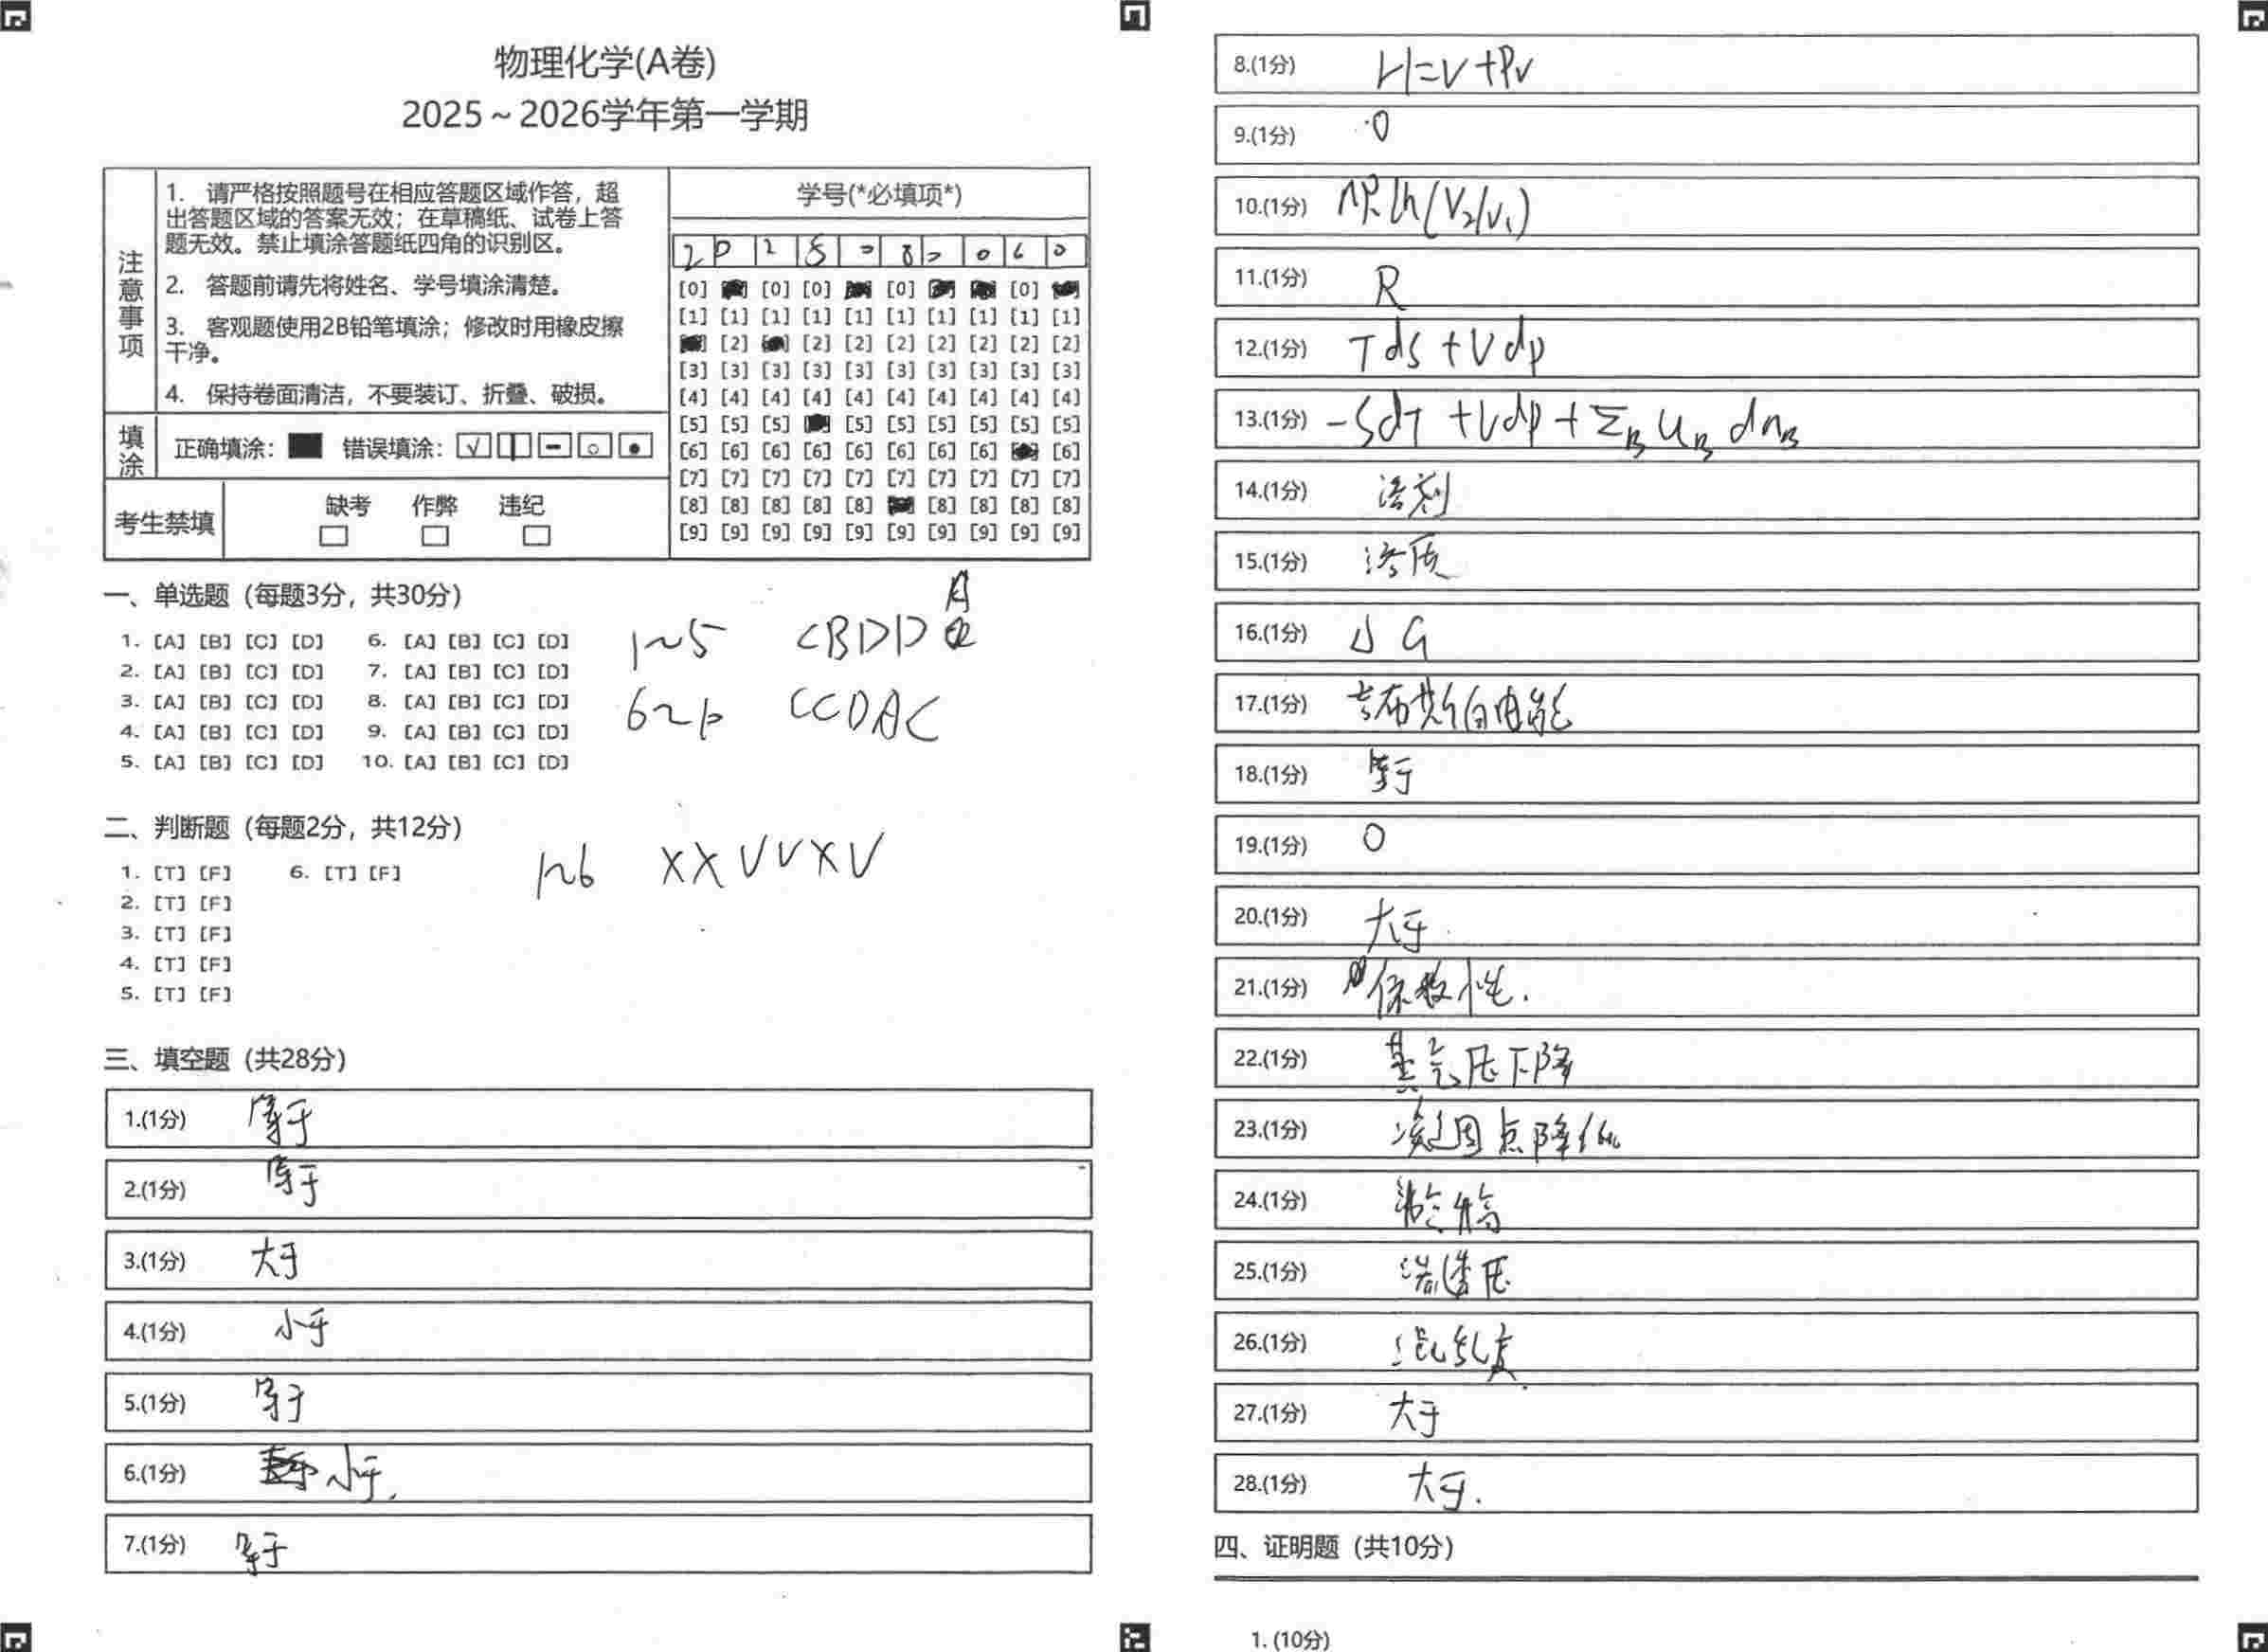 物理化学(A卷)
2025～2026学年第一学期
注意事项
1. 请严格按照题号在相应答题区域作答，超
出答题区域的答案无效；在草稿纸、试卷上答
题无效。禁止填涂答题纸四角的识别区。
2. 答题前请先将姓名、学号填涂清楚。
3. 客观题使用2B铅笔填涂；修改时用橡皮擦
干净。
4. 保持卷面清洁，不要装订、折叠、破损。
填涂
正确填涂： 错误填涂：
考生禁填
缺考 作弊 违纪
学号(*必填项*)
2 0 2 5 0 8 0 0 6 0
[0] [0] [0] [0] [0] [0]
[1] [1] [1] [1] [1] [1] [1] [1] [1] [1]
[2] [2] [2] [2] [2] [2] [2] [2]
[3] [3] [3] [3] [3] [3] [3] [3] [3] [3]
[4] [4] [4] [4] [4] [4] [4] [4] [4] [4]
[5] [5] [5] [5] [5] [5] [5] [5] [5]
[6] [6] [6] [6] [6] [6] [6] [6] [6]
[7] [7] [7] [7] [7] [7] [7] [7] [7] [7]
[8] [8] [8] [8] [8] [8] [8] [8] [8]
[9] [9] [9] [9] [9] [9] [9] [9] [9] [9]
一、单选题（每题3分，共30分）
1. [A] [B] [C] [D] 6. [A] [B] [C] [D]
2. [A] [B] [C] [D] 7. [A] [B] [C] [D]
3. [A] [B] [C] [D] 8. [A] [B] [C] [D]
4. [A] [B] [C] [D] 9. [A] [B] [C] [D]
5. [A] [B] [C] [D] 10. [A] [B] [C] [D]
1~5 CBDD
6~10 CCDAC
二、判断题（每题2分，共12分）
1. [T] [F] 6. [T] [F]
2. [T] [F]
3. [T] [F]
4. [T] [F]
5. [T] [F]
1~6 ××√√×√
三、填空题（共28分）
1.(1分) 等于
2.(1分) 等于
3.(1分) 大于
4.(1分) 小于
5.(1分) 等于
6.(1分) 小于.
7.(1分) 等于
8.(1分) H=U+PV
9.(1分) 0
10.(1分) nR ln(V₂/V₁)
11.(1分) R
12.(1分) Tds+Vdp
13.(1分) -SdT+Vdp+Σ_B u_B dn_B
14.(1分) 溶剂
15.(1分) 溶质
16.(1分) ΔG
17.(1分) 吉布斯自由能
18.(1分) 等于
19.(1分) 0
20.(1分) 大于
21.(1分) 依数性.
22.(1分) 蒸气压下降
23.(1分) 凝固点降低
24.(1分)
25.(1分) 渗透压
26.(1分) 混乱度
27.(1分) 大于
28.(1分) 大于.
四、证明题（共10分）
1. (10分)